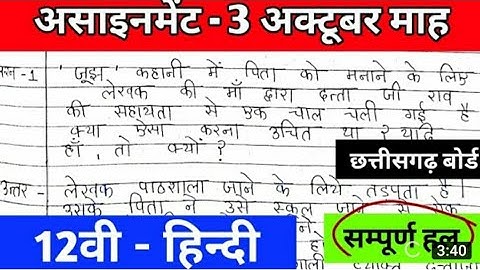 असाइनमेंट - 3 अक्टूबर माह
प्रश्न -1 'जूझ' कहानी में पिता को मनाने के लिए
लेखक की माँ द्वारा दत्ता जी राव
की सहायता से एक चाल चली गई है
क्या ऐसा करना उचित था ? यदि
हाँ, तो क्यों ?
छत्तीसगढ़ बोर्ड
उत्तर - लेखक पाठशाला जाने के लिये तड़पता है।
उसके पिता ने उसे स्कूल जाने से रोक
12वी - हिन्दी
सम्पूर्ण हल
3:40